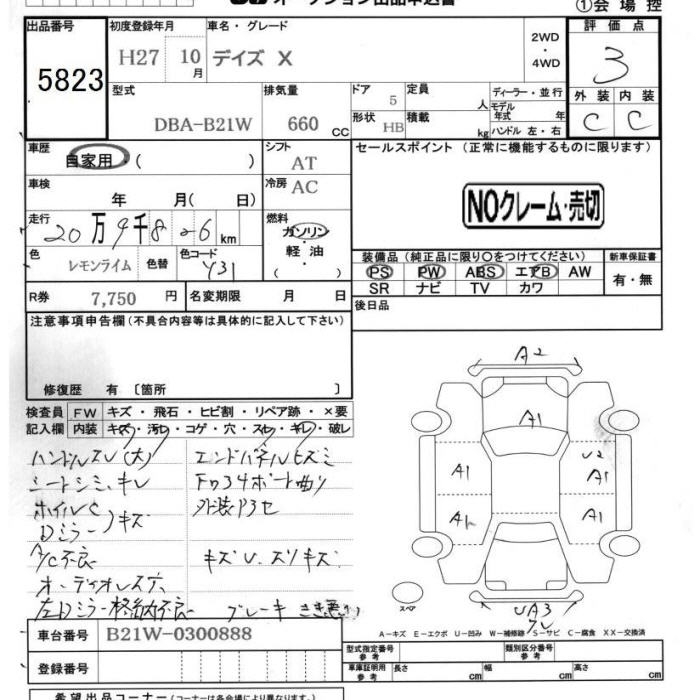 オークション出品申込書 ①会場控
出品番号 初度登録年月 車名・グレード 2WD・4WD 評価点
5823 H27 10月 デイズ X 3
型式 排気量 ドア 5 定員 人 ディーラー・並行 外装 内装
DBA-B21W 660 CC 形状 HB 積載 kg モデル年式 年式 ハンドル 左・右 C C
車歴 自家用 ( ) シフト AT セールスポイント (正常に機能するものに限ります)
車検 年 月( 日) 冷房 AC
NOクレーム・売切
走行 20万9千8 26 km 燃料 ガソリン・軽油・( )
色 レモンライム 色替 色コード Y31 装備品 (純正品に限り○をつけてください) 新車保証書
PS PW ABS エアB AW 有・無
SR ナビ TV カワ
R券 7,750 円 名変期限 月 日 後日品
注意事項申告欄 (不具合内容等は具体的に記入して下さい)
修復歴 有 〔箇所 〕
検査員記入欄 FW キズ・飛石・ヒビ割・リペア跡・×要
内装 キズ・汚レ・コゲ・穴・スレ・キレ・破レ
ハンドルスレ(大) エンドパネルヒズミ
シートシミ、キレ
ホイルC
Dミラーキズ
A/C不良 キズU、スリキズ
オーディオレス穴
左Dミラー格納不良 ブレーキきき悪い
A2
A1
A1 U2 A1
A1
UA3
スペア
A-キズ E-エクボ U-凹み W-補修跡 S-サビ C-腐食 XX-交換済
車台番号 B21W-0300888
登録番号
型式指定番号 参考 類別区分番号 参考
車庫証明用 参考 長さ cm 幅 cm 高さ cm
希望出品コーナー(コーナーは各会場により異なります)